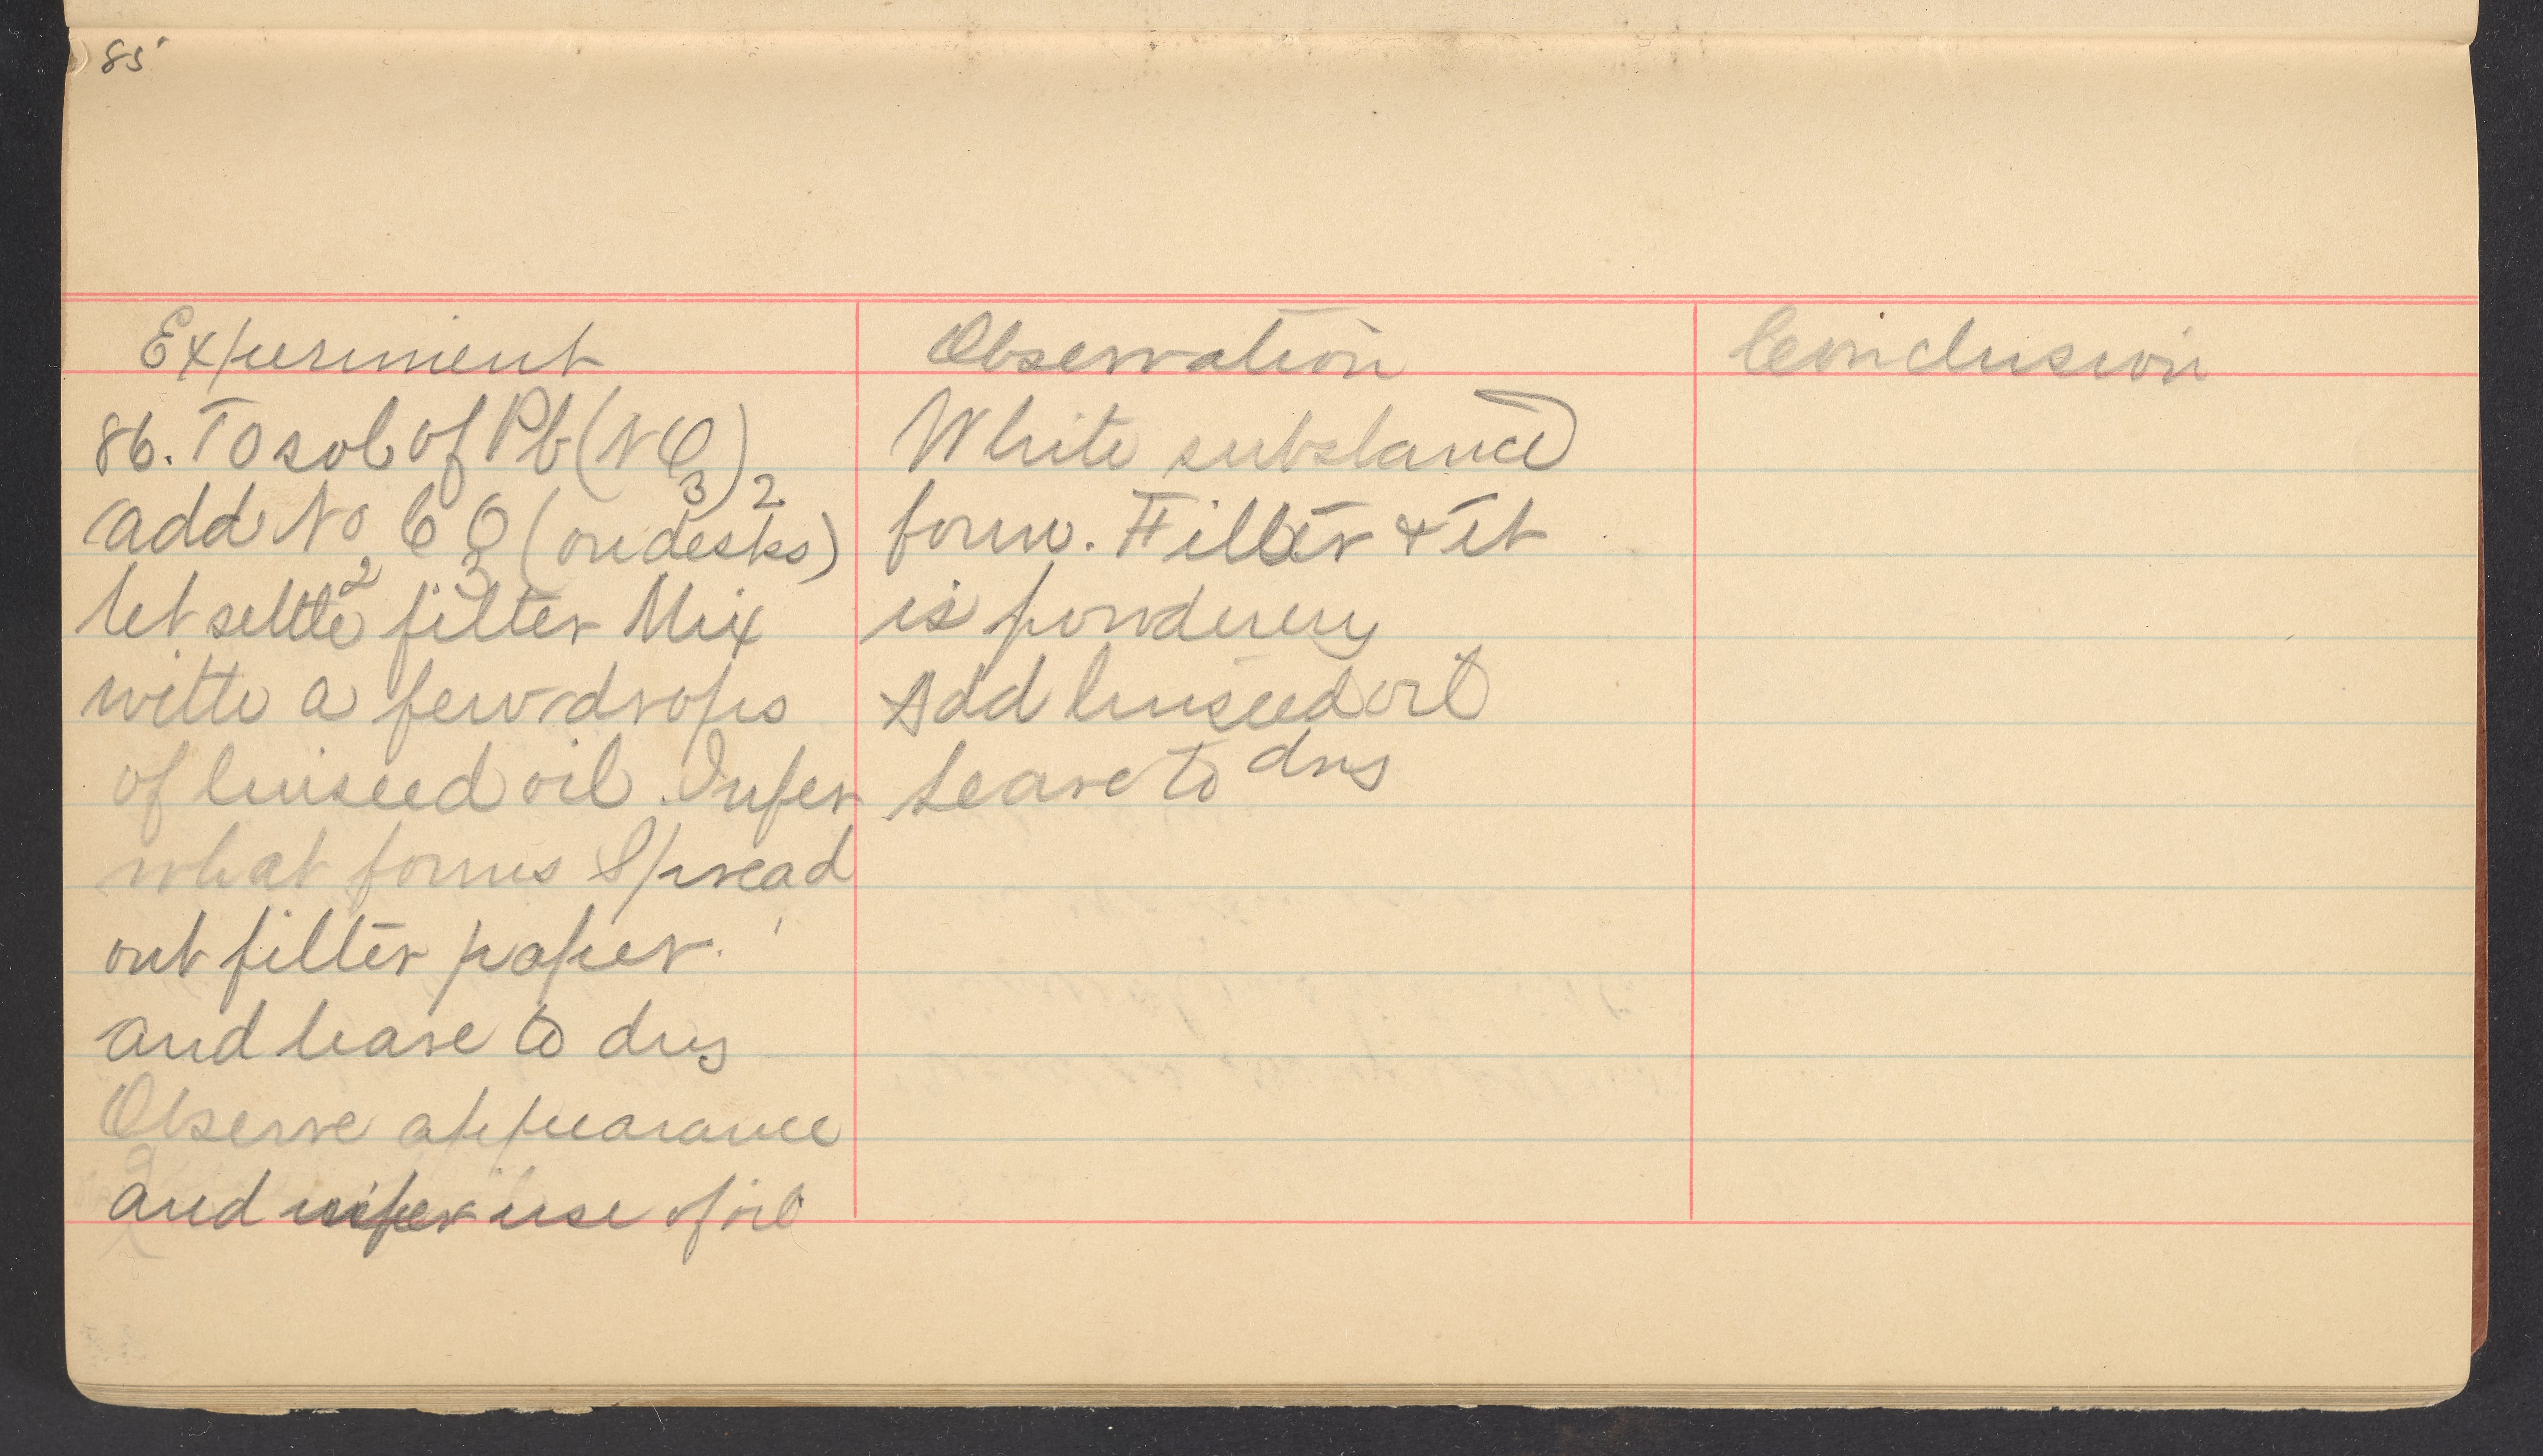 85
Experiment
86. To sol of Pb(NO3)2
add Na2CO3 (on desks)
let settle filter Mix
with a few drops
of linseed oil. Infer
what forms Spread
out filter paper.
and leave to dry
Observe appearance
and infer use of oil
Observation
White substance
form. Filter & it
is powdery
Add linseed oil
Leave to dry
Conclusion